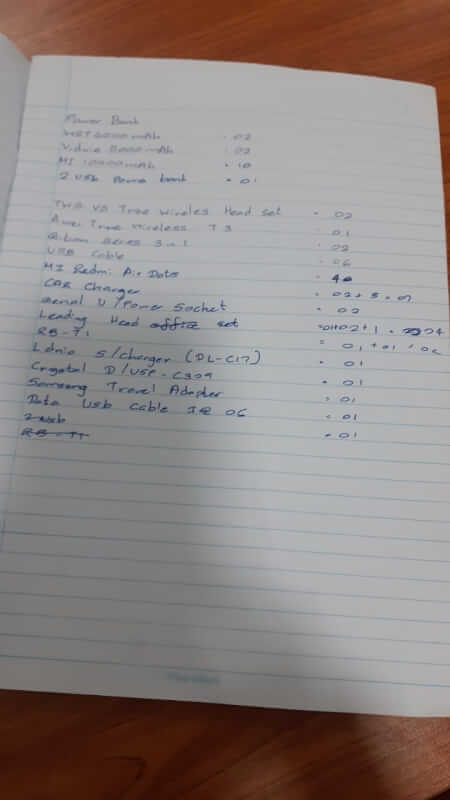 Power Bank
6000 mAh - 02
8000 mAh - 02
MI 10000 mAh - 10
2 USB Power bank - 01
TWS V8 True Wireles Head set - 02
True Wireless T3 - 01
series 3 in 1 - 02
USB Cable - 06
MI Redmi Air Dots - 40
CAR Charger - 02 + 5 =
U/Power Socket - 02
Leading Head office set = 01+02+1 = 04
RB-T1 = 01 + 01 =
Ldnio S/charger (DL-C17) - 01
Crystal D/USP - C309 - 01
Samsung Travel Adapter - 01
Data Usb Cable 06 - 01
2 usb - 01
RB-T1